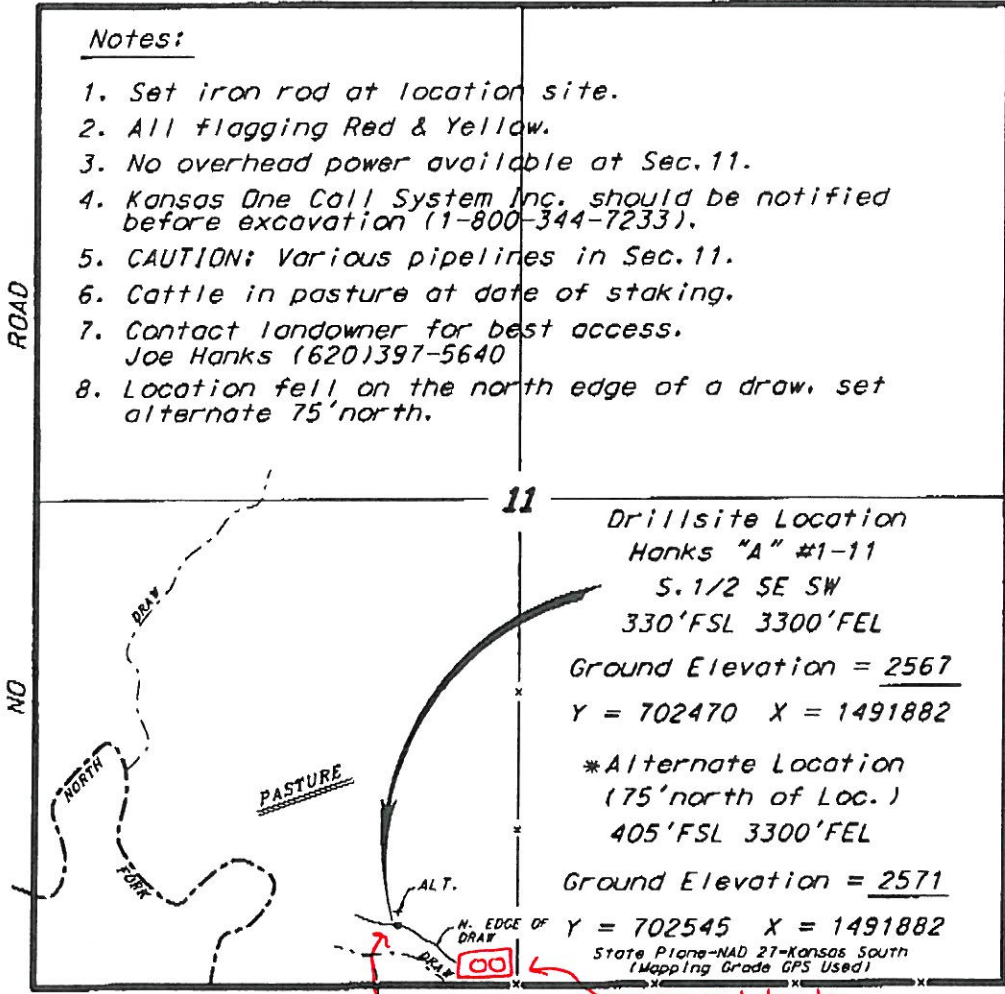 Notes:
1. Set iron rod at location site.
2. All flagging Red & Yellow.
3. No overhead power available at Sec.11.
4. Kansas One Call System Inc. should be notified
before excavation (1-800-344-7233).
5. CAUTION: Various pipelines in Sec.11.
6. Cattle in pasture at date of staking.
7. Contact landowner for best access.
Joe Hanks (620)397-5640
8. Location fell on the north edge of a draw, set
alternate 75'north.
ROAD
NO
11
Drillsite Location
Hanks "A" #1-11
S. 1/2 SE SW
330'FSL 3300'FEL
Ground Elevation = 2567
Y = 702470 X = 1491882
*Alternate Location
(75'north of Loc.)
405'FSL 3300'FEL
Ground Elevation = 2571
Y = 702545 X = 1491882
State Plane-NAD 27-Kansas South
(Mapping Grade GPS Used)
DRAW
NORTH
FORK
PASTURE
ALT.
N. EDGE OF
DRAW
DRAW